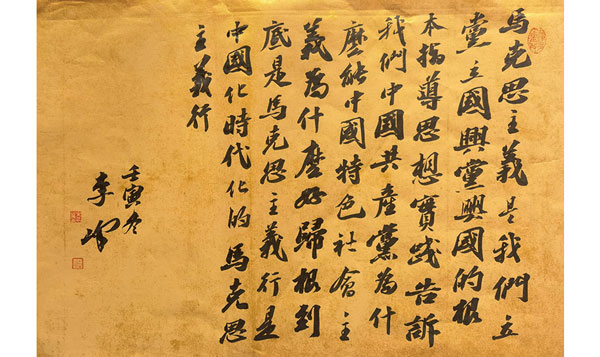 馬克思主義是我們立
黨立國興黨興國的根
本指導思想實踐告訴
我們中國共產黨為什
麼能中國特色社會主
義為什麼好歸根到
底是馬克思主義行是
中國化時代化的馬克思
主義行
壬寅冬
李